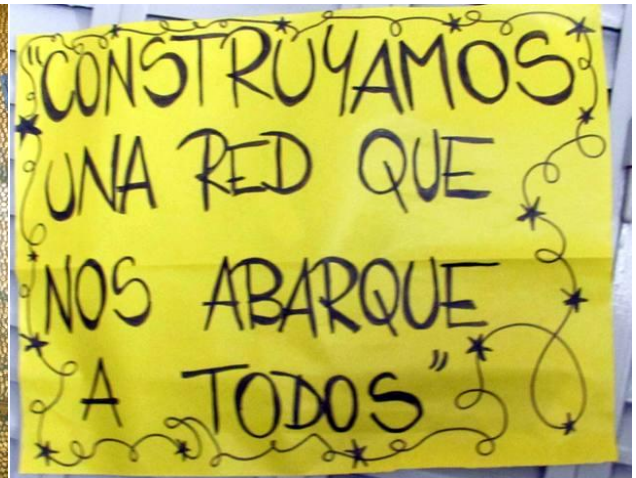 "CONSTRUYAMOS
UNA RED QUE
NOS ABARQUE
A TODOS"